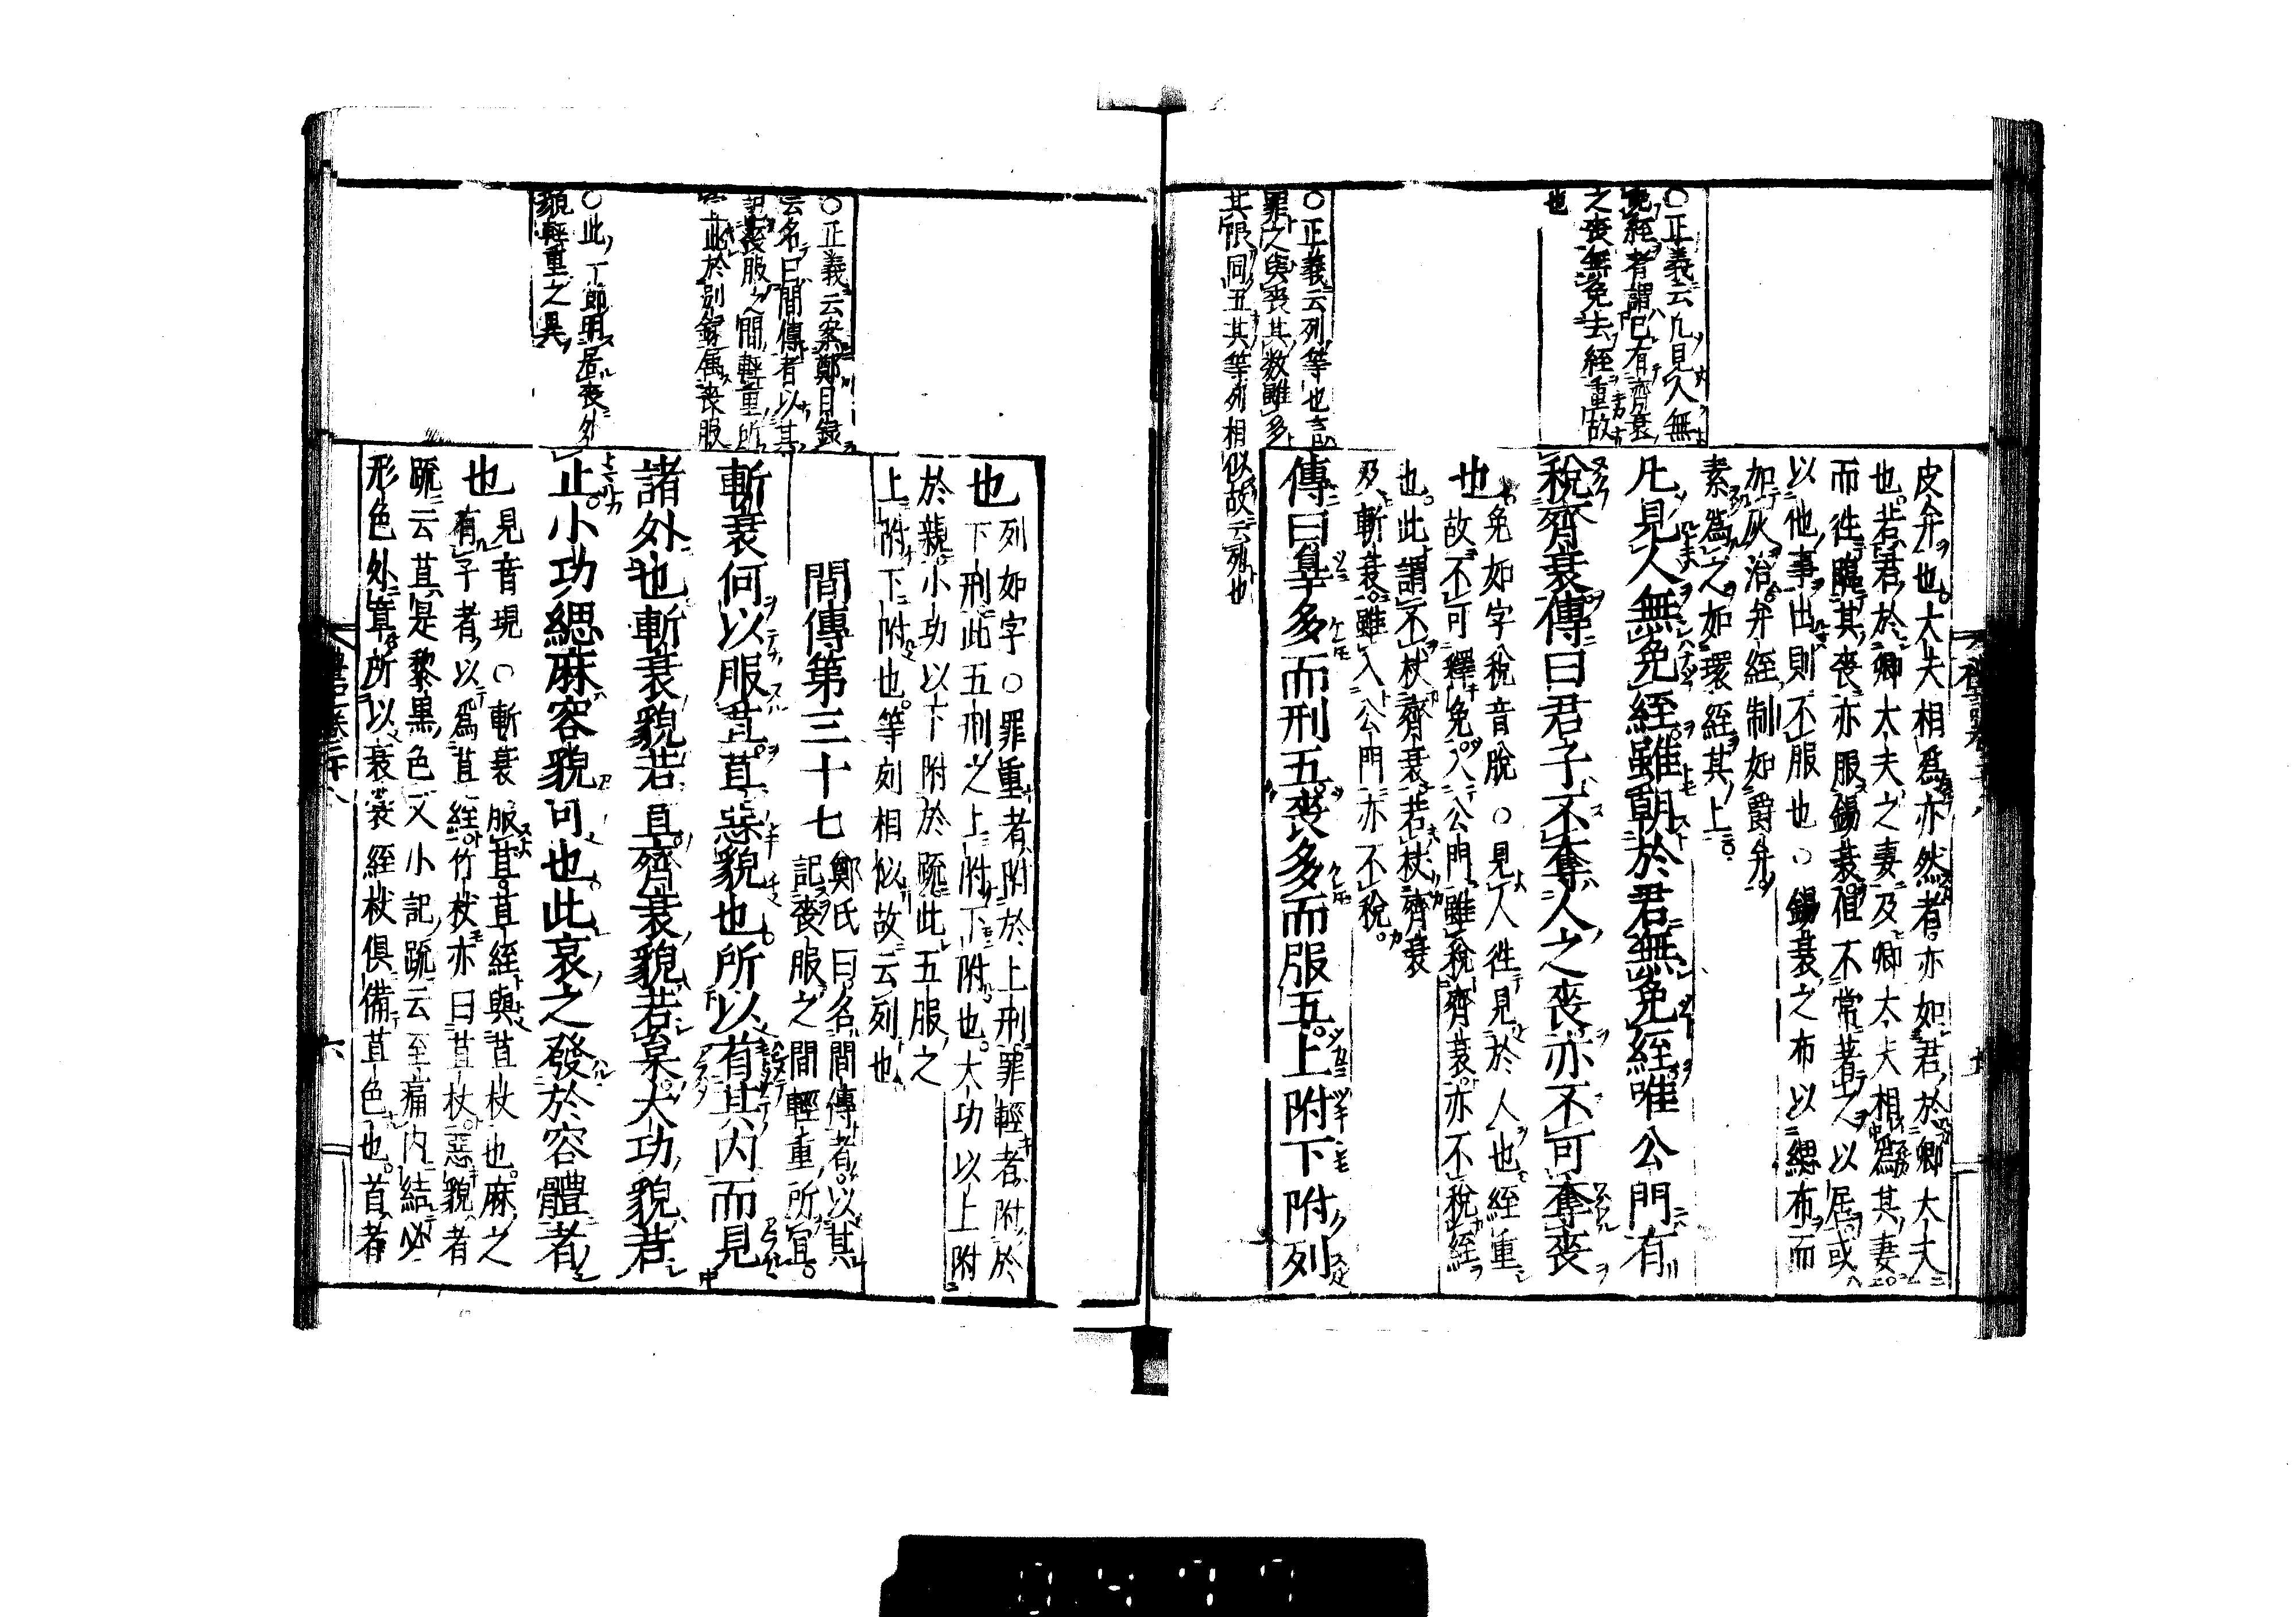 皮弁也大夫相爲亦然者亦如君於卿大夫
也若君於卿大夫之妻及卿大夫相爲其妻
而往臨其喪亦服錫衰但不常著之以居或
以他事出則不服也○錫衰之布以緦布而
加灰治弁絰制如爵弁
素爲之如環絰其上
凡見人無免絰雖朝於君無免絰唯公門有
稅齊衰傳曰君子不奪人之喪亦不可奪喪
也
免如字稅音脫○見人往見於人也絰重
故不可釋免入公門雖稅齊衰亦不稅絰
也此謂不杖齊衰若杖齊衰
及斬衰雖入公門亦不稅
傳曰辠多而刑五喪多而服五上附下附列
○正義云凡見人無
免絰者謂已有齊衰
之喪無免去絰重故
也
○正義云列等也言
罪之與喪其數雖多
其限同五其等列相似故云列也
也
列如字○罪重者附於上刑罪輕者附於
下刑此五刑之上附下附也大功以上附
於親小功以下附於疏此五服之
上附下附也等列相似故云列也
間傳第三十七
鄭氏曰名間傳者以其
記喪服之間輕重所宜
斬衰何以服苴苴惡貌也所以首其內而見
諸外也斬衰貌若苴齊衰貌若枲大功貌若
止小功緦麻容貌可也此哀之發於容體者
也
見音現○斬衰服苴苴絰與苴杖也麻之
有子者以爲苴絰竹杖亦曰苴杖惡貌者
疏云苴是黎黑色又小記疏云至痛內結必
形色外章所以衰裳絰杖俱備苴色也首者
○正義云案鄭目錄
云名曰間傳者以其
記喪服之間輕重所
宜此於別錄屬喪服
○此一節明居喪外
貌輕重之異
禮記卷二十八
六